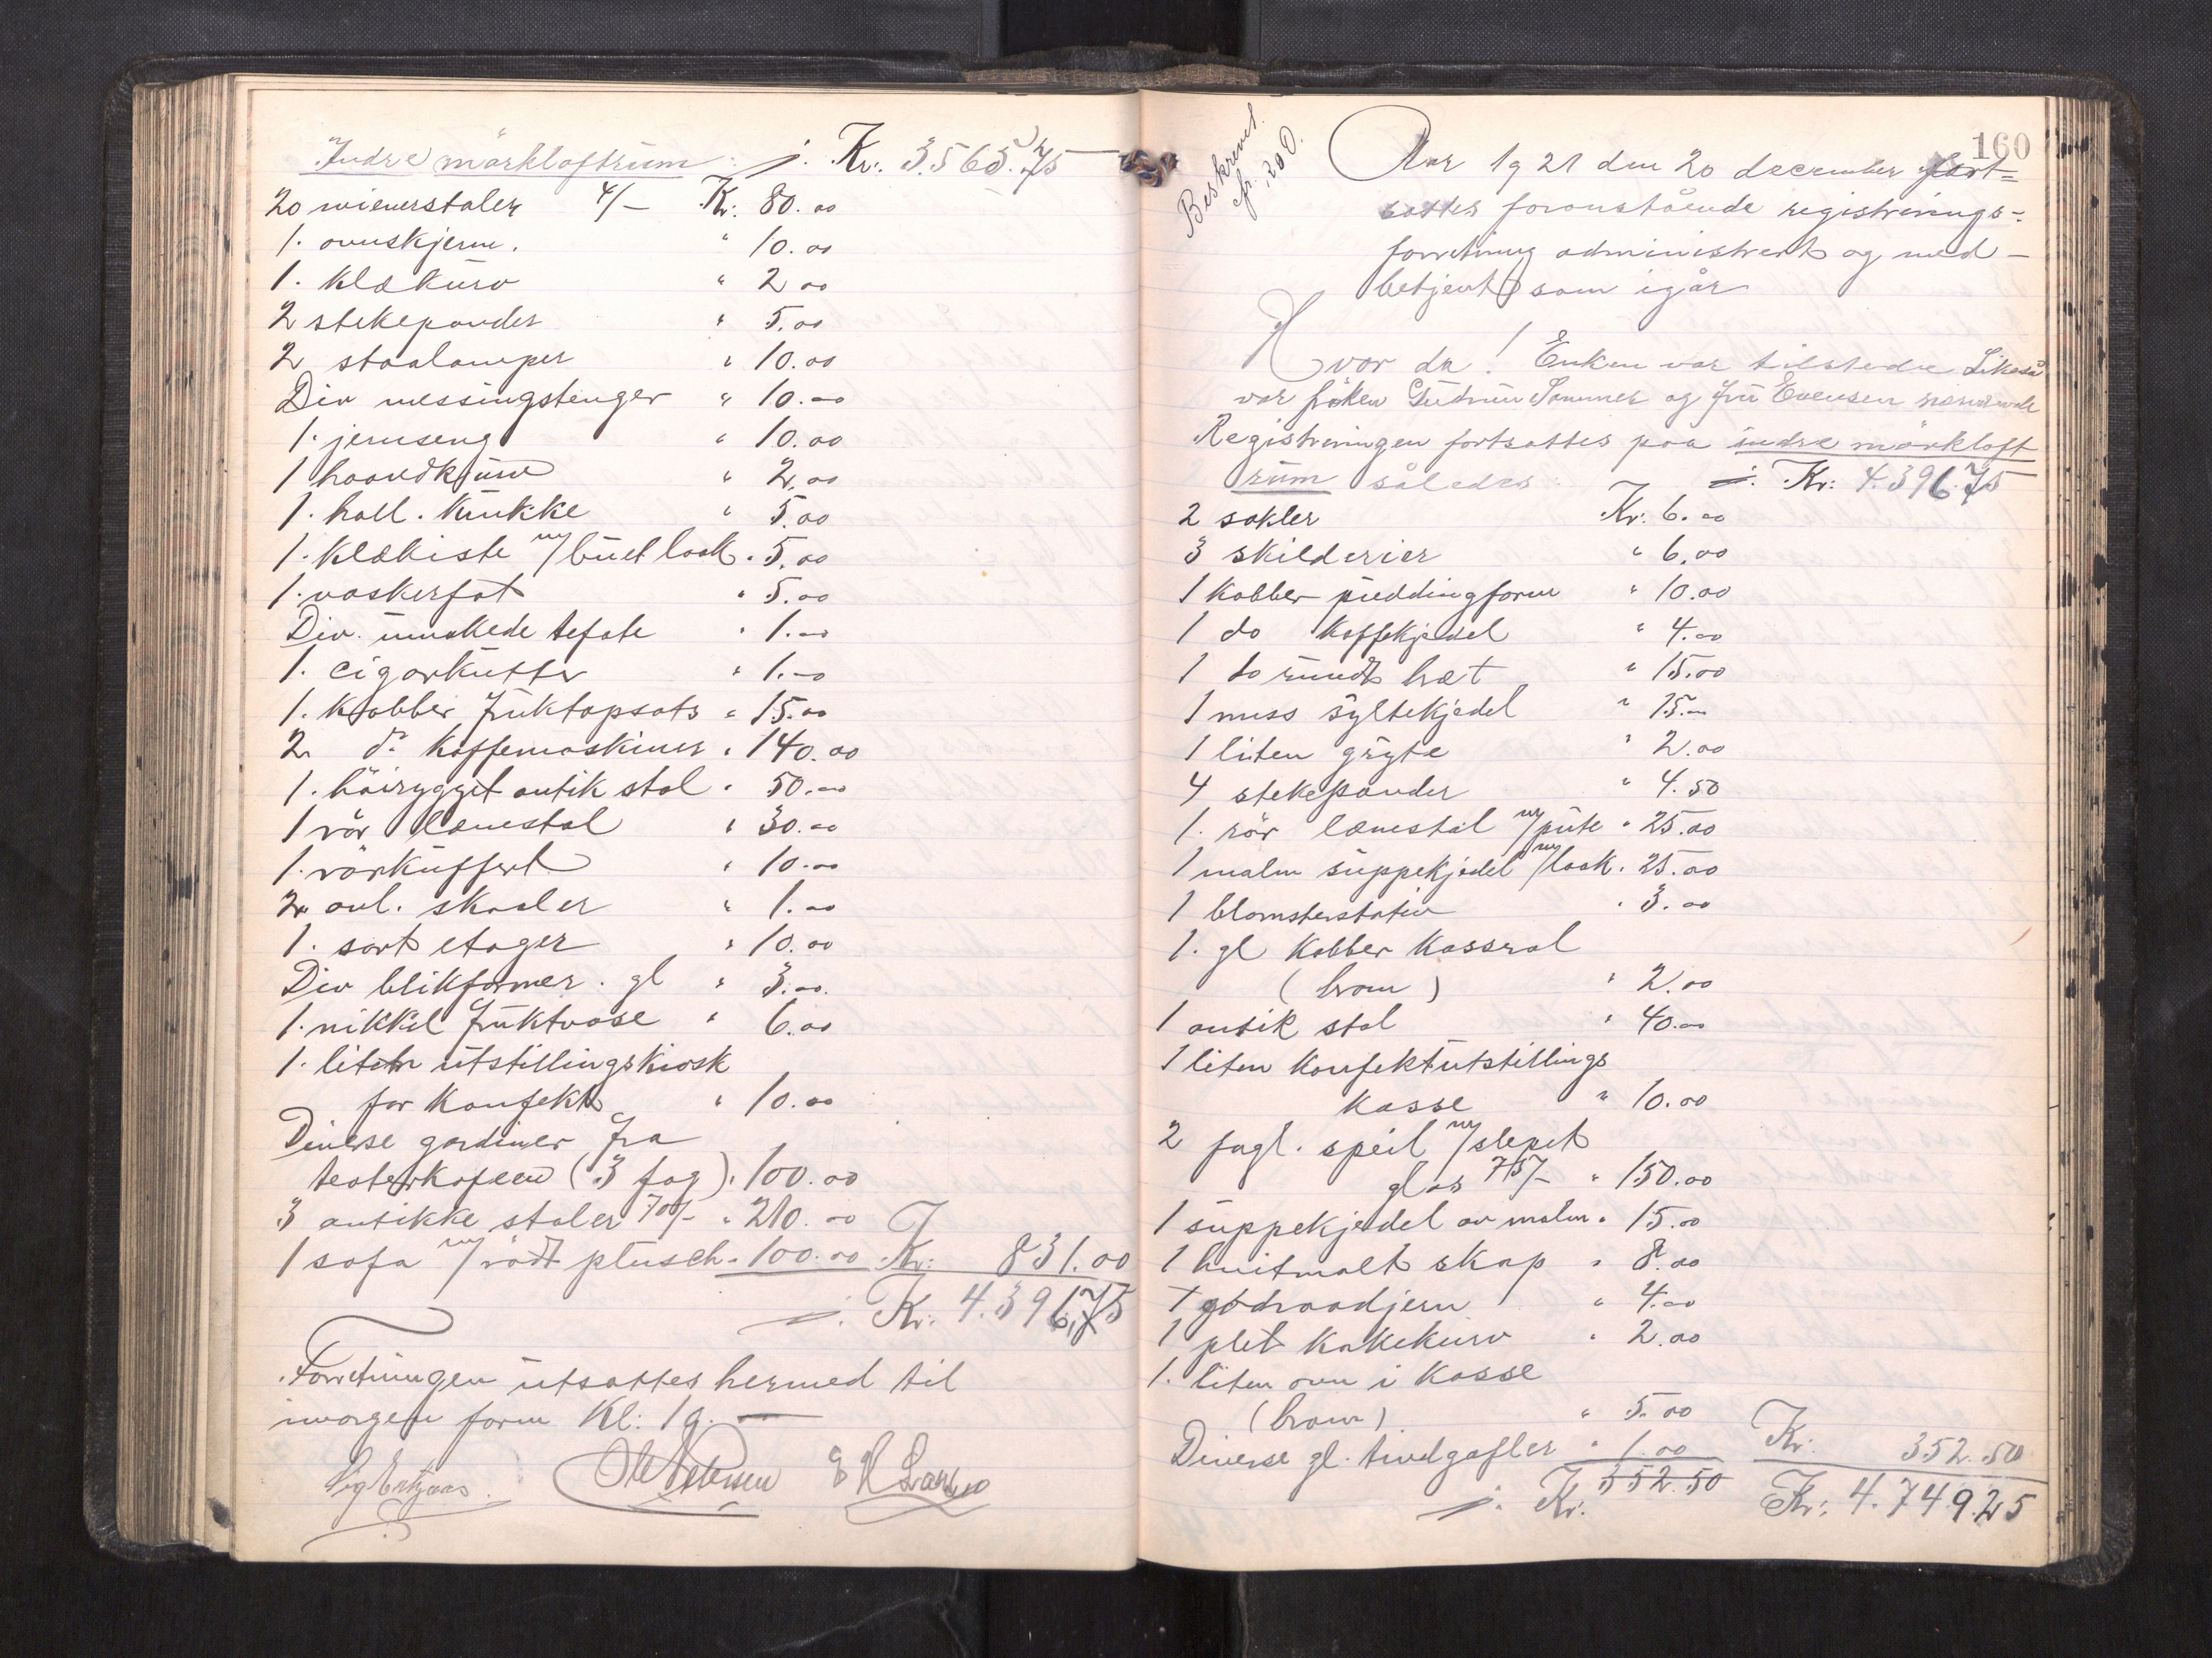 Indre mörkloftrum ./. Kr. 3.565.75
20 wienerstoler 4/- Kr. 80.00
1. ovnskjerm. " 10.00
1. klækurv " 2 00
2 stekepander " 5.00
2 staalamper " 10.00
Div messingstenger " 10.00
1. jernseng " 10.00
1 haandkurv " 2.00
1. holl. krukke " 5.00
1. klækiste m/buet lok " 5.00
1. vaskerfat " 5.00
Div. umakede tefate " 1.00
1. cigarkutter " 1.00
1. kobber fruktopsats " 15.00
2 do kaffemaskiner " 140.00
1. höirygget antik stol " 50.00
1 rör lænestol " 30.00
1. rörkuffert " 10.00
2 ovl. skaaler " 1.00
1. sort etager " 10.00
Div blikformer. gl " 3.00.
1. nikkel fruktvase " 6.00
1. liten utstillingskiosk
for konfekt " 10.00
Diverse gardiner fra
teaterkafeen (3 fag) " 100.00
3 antikke stoler 70/- " 210.00
1 sofa m/rödt plusch " 100.00 Kr. 831.00
./. Kr. 4.396,75
Forretningen utsattes hermed til
imorgen form Kl: 19. —
O Petersen
160
Beskrevet.
Aar 1921 den 20 december fort=
sattes foranstående registrerings=
forretning administrert og med-
betjent som igår
Hvor da! Enken var tilstede Likeså
var fröken Gudrun Sommer og fru Evensen nærværende
Registreringen fortsattes paa indre mörkloft
rum således: ./. Kr: 4.396.75
2 sokler Kr. 6.00
3 skilderier " 6.00
1 kobber puddingform " 10.00
1 do kaffekjedel " 4.00
1 do rundt bræt " 15.00
1 mess syltekjedel " 15.00
1 liten gryte " 2.00
4 stekepander " 4.50
1. rör lænestol m/pute " 25.00
1 malm suppekjedel m/lok " 25.00
1 blomsterstativ " 3.00
1. gl kobber kasserol
(brom) " 2.00
1 antik stol " 40.00
1 liten konfektutstillings
kasse " 10.00
2 fagl. speil m/slepet
glas 75/- " 150.00
1 suppekjedel av malm " 15.00
1 hvitmalt skap " 8.00
1 godraadjern " 4.00
1 plet kakekurv " 2.00
1. liten ovn i kasse
(brom) " 5.00
Diverse gl. tindgafler " 1.00 Kr. 352.50
./. Kr. 352.50 Kr: 4.749.25